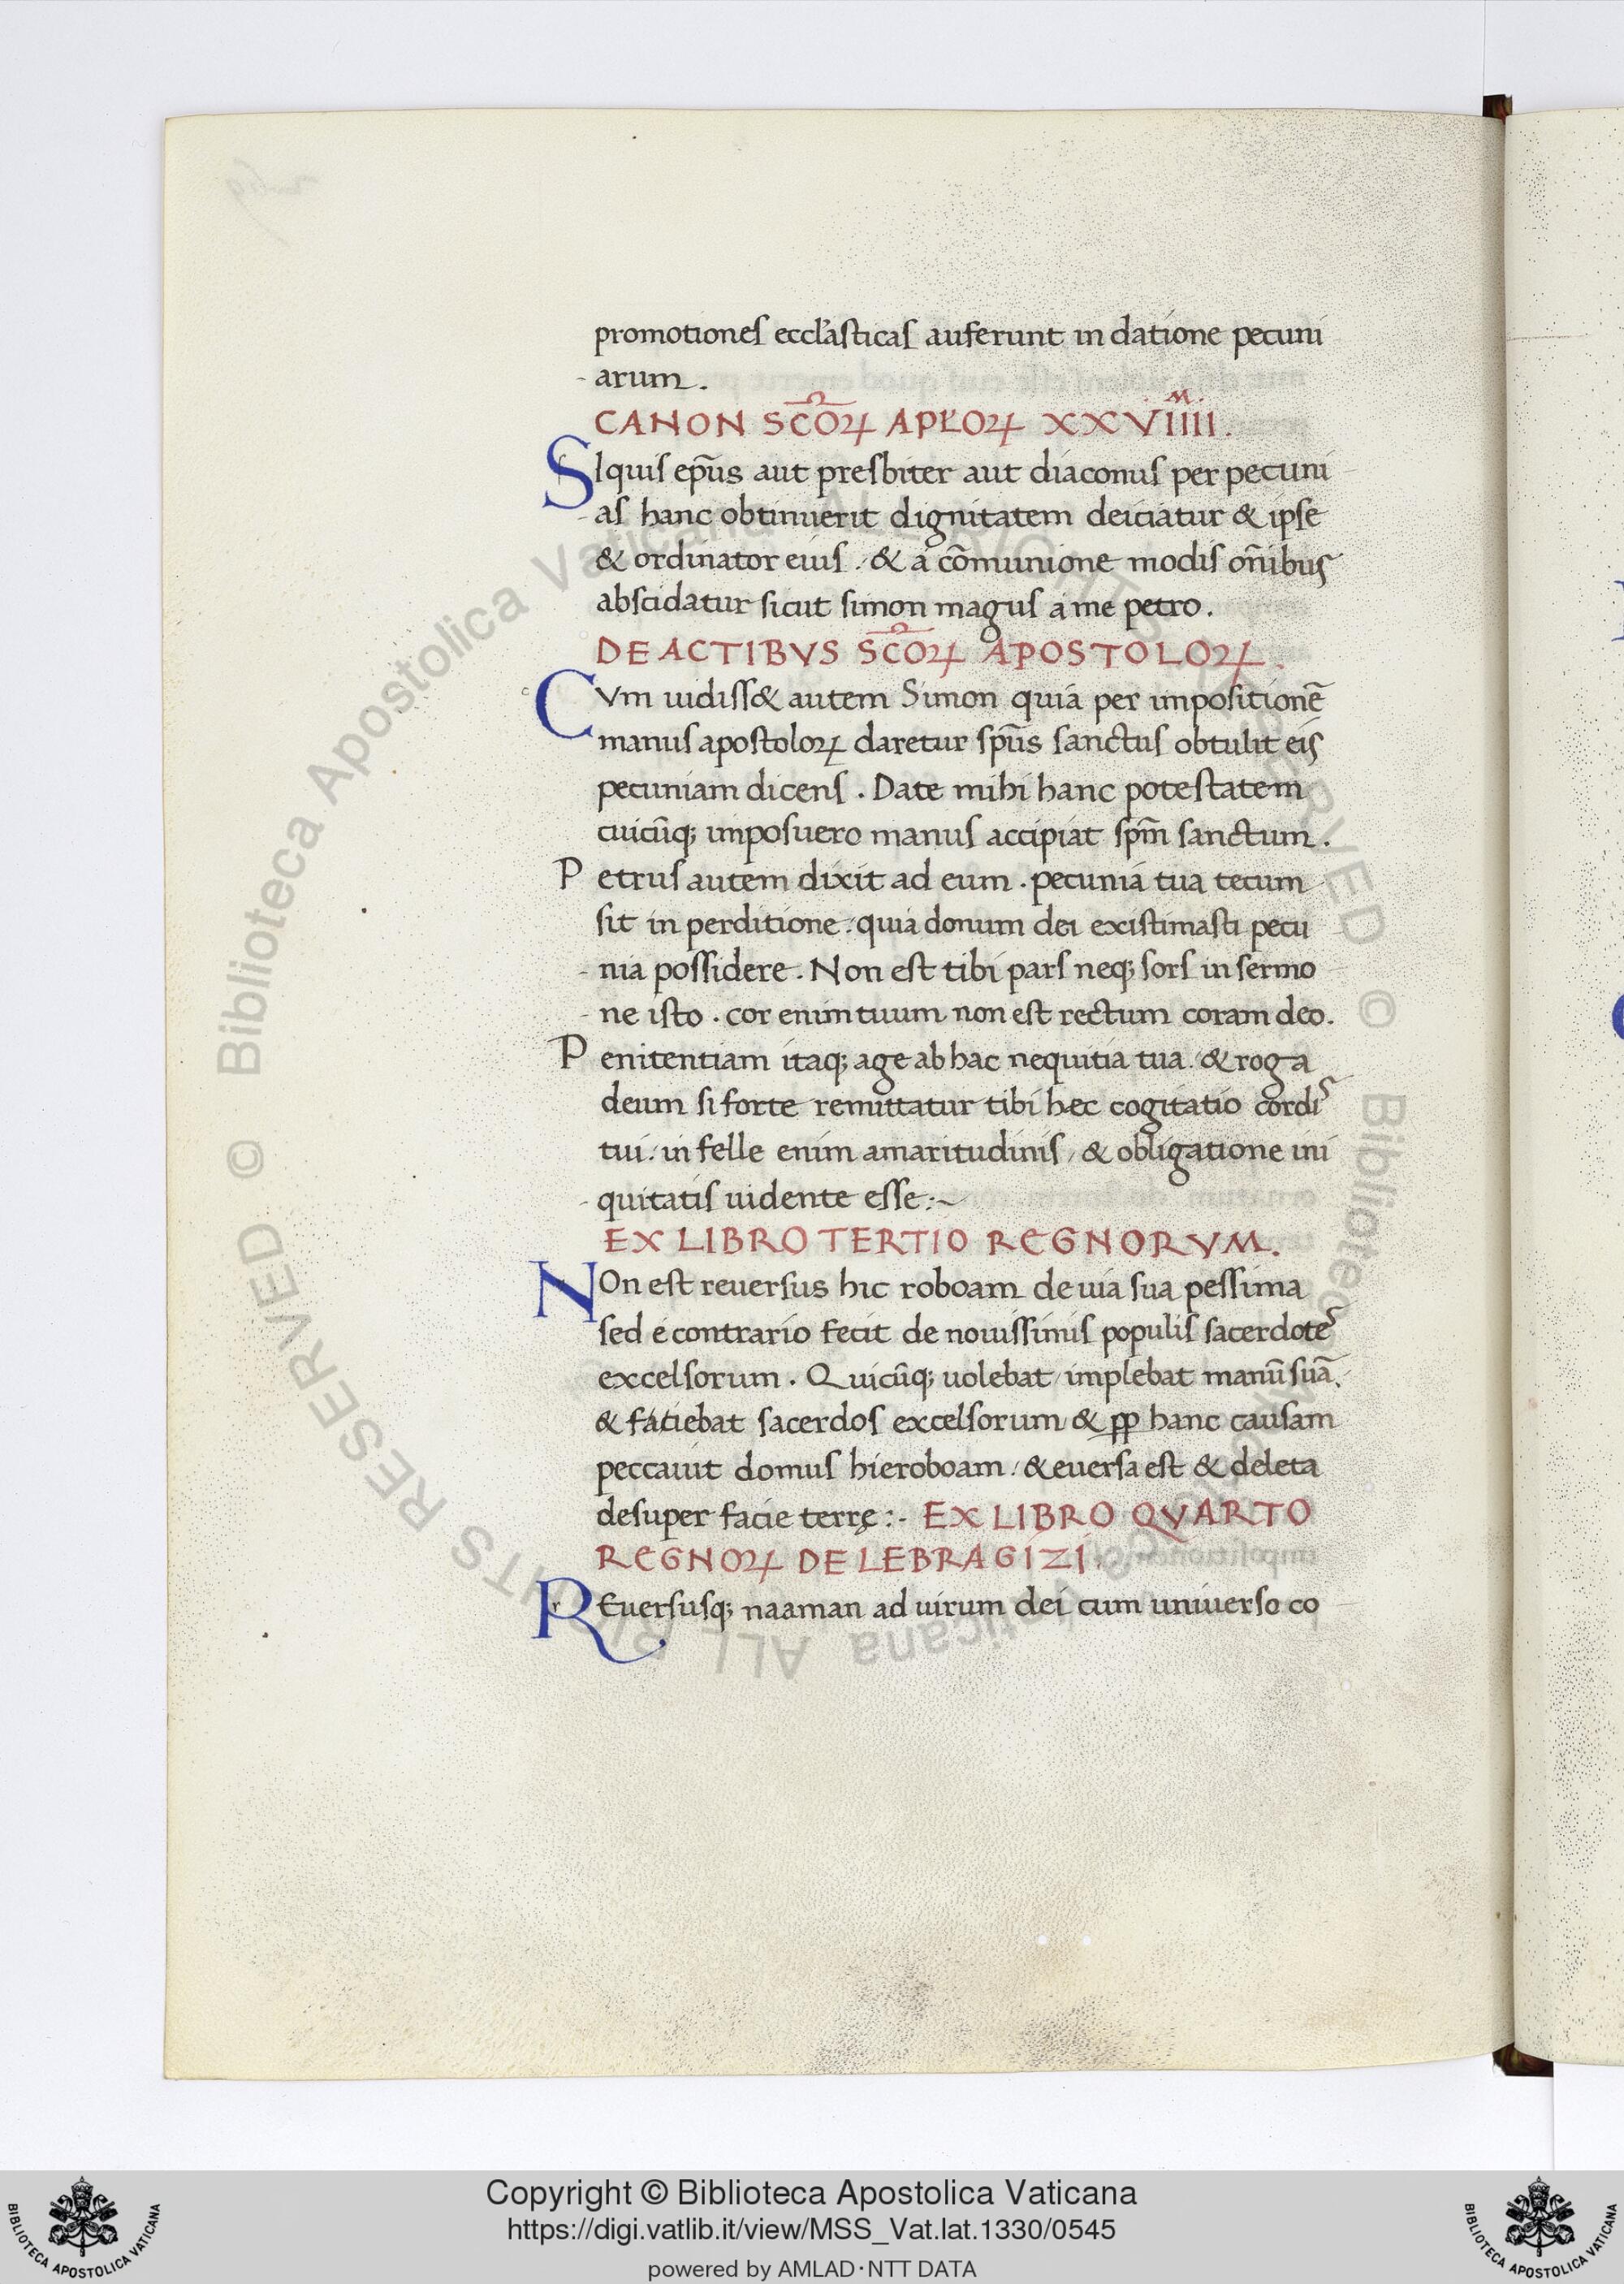 promotiones eccl'asticas auferunt in datione pecuni
-arum.
CANON SC̅OꝜ APŁOꝜ XXVIIII.M.
SIquis ep̅us aut presbiter aut diaconus per pecuni
-as hanc obtinuerit dignitatem deiciatur & ipse
& ordinator eius. & a co̅munione modis om̅ibus
abscidatur sicut simon magus a me petro.
DE ACTIBVS SC̅OꝜ APOSTOLOꝜ.
CVm uidiss& autem Simon quia per impositione̅
manus apostoloꝝ daretur sp̅us sanctus obtulit eis
pecuniam dicens. Date mihi hanc potestatem
cuicu̅q; imposuero manus accipiat sp̅m sanctum.
Petrus autem dixit ad eum. pecunia tua tecum
sit in perditione. quia donum dei existimasti pecu
-nia possidere. Non est tibi pars neq; sors in sermo
-ne isto. cor enim tuum non est rectum coram deo.
Penitentiam itaq; age ab hac nequitia tua. & roga
deum si forte remittatur tibi hec cogitatio cordis
tui. in felle enim amaritudinis, & obligatione ini
-quitatis uidente esse:~
EX LIBRO TERTIO REGNORVM.
NOn est reuersus hic roboam de uia sua pessima
sed e contrario fecit de nouissimis populis sacerdotes
excelsorum. Quicu̅q; uolebat implebat manu̅ sua̅.
& faciebat sacerdos excelsorum & pp hanc causam
peccauit domus hieroboam. & euersa est & deleta
desuper facie terrę:- EX LIBRO QVARTO
REGNOꝜ DE LEBRA GIZI.
REuersusq; naaman ad uirum dei cum uniuerso co
© Biblioteca Apostolica Vaticana ALL RIGHTS RESERVED © Biblioteca Apostolica Vaticana ALL RIGHTS RESERVED
BIBLIOTECA APOSTOLICA VATICANA
Copyright © Biblioteca Apostolica Vaticana
https://digi.vatlib.it/view/MSS_Vat.lat.1330/0545
powered by AMLAD·NTT DATA
BIBLIOTECA APOSTOLICA VATICANA